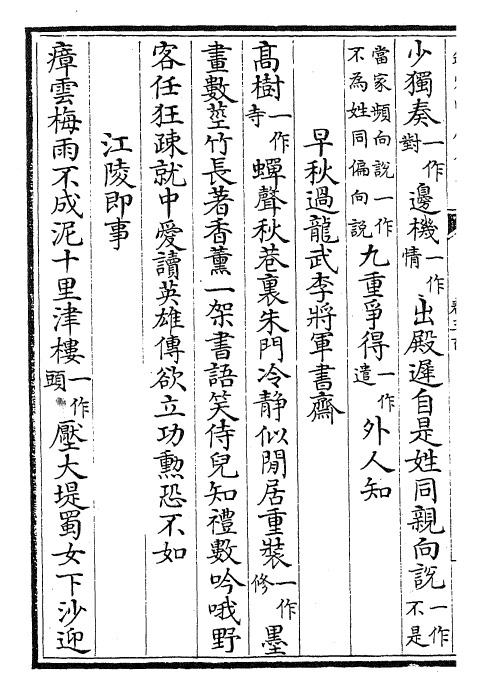 少獨奏一作對邊機一作情出殿遲自是姓同親向說一作不是
當家頻向說一作不為姓同偏向說九重爭得一作遣外人知
早秋過龍武李將軍書齋
髙樹一作寺蟬聲秋巷裏朱門冷静似閒居重裝一作修墨
畫數莖竹長著香薰一架書語笑侍兒知禮數吟哦野
客任狂疎就中愛讀英雄傳欲立功勲恐不如
江陵即事
瘴雲梅雨不成泥十里津樓一作頭壓大堤蜀女下沙迎